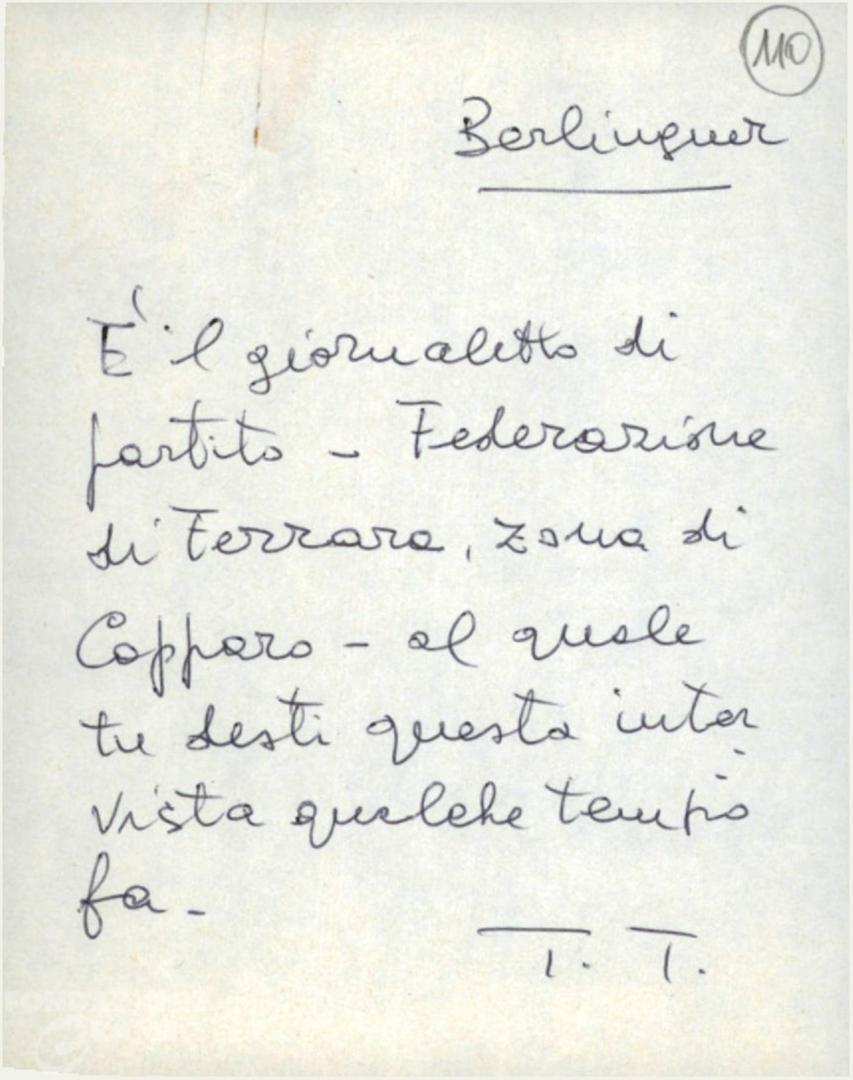 110
Berlinguer
È il giornaletto di
partito - Federazione
di Ferrara, zona di
Copparo - al quale
tu desti questa inter
vista qualche tempo
fa -
T. T.